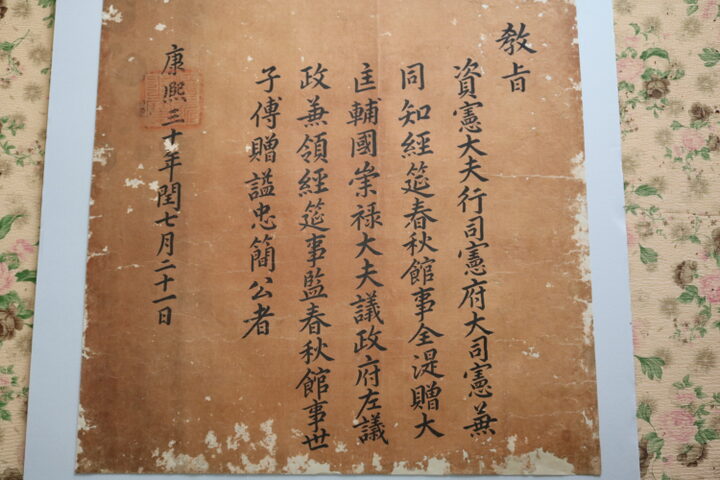 教旨
資憲大夫行司憲府大司憲兼
同知經筵春秋館事全湜贈大
匡輔國崇禄大夫議政府左議
政兼領經筵事監春秋館事世
子傅贈謚忠簡公者
康熙三十年閏七月二十一日